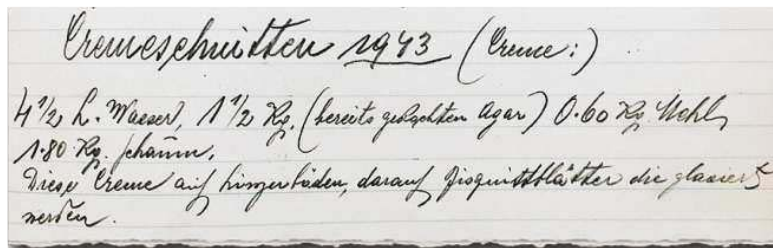 Cremeschnitten 1943 (Creme:)
4 1/2 L. Wasser, 1 1/2 Kg. (bereits gekochten Agar) 0.60 Kg. Mehl,
1.80 Kg. schaum.
Diese Creme auf Linzerböden, darauf Bisquittblätter die glasiert
werden.